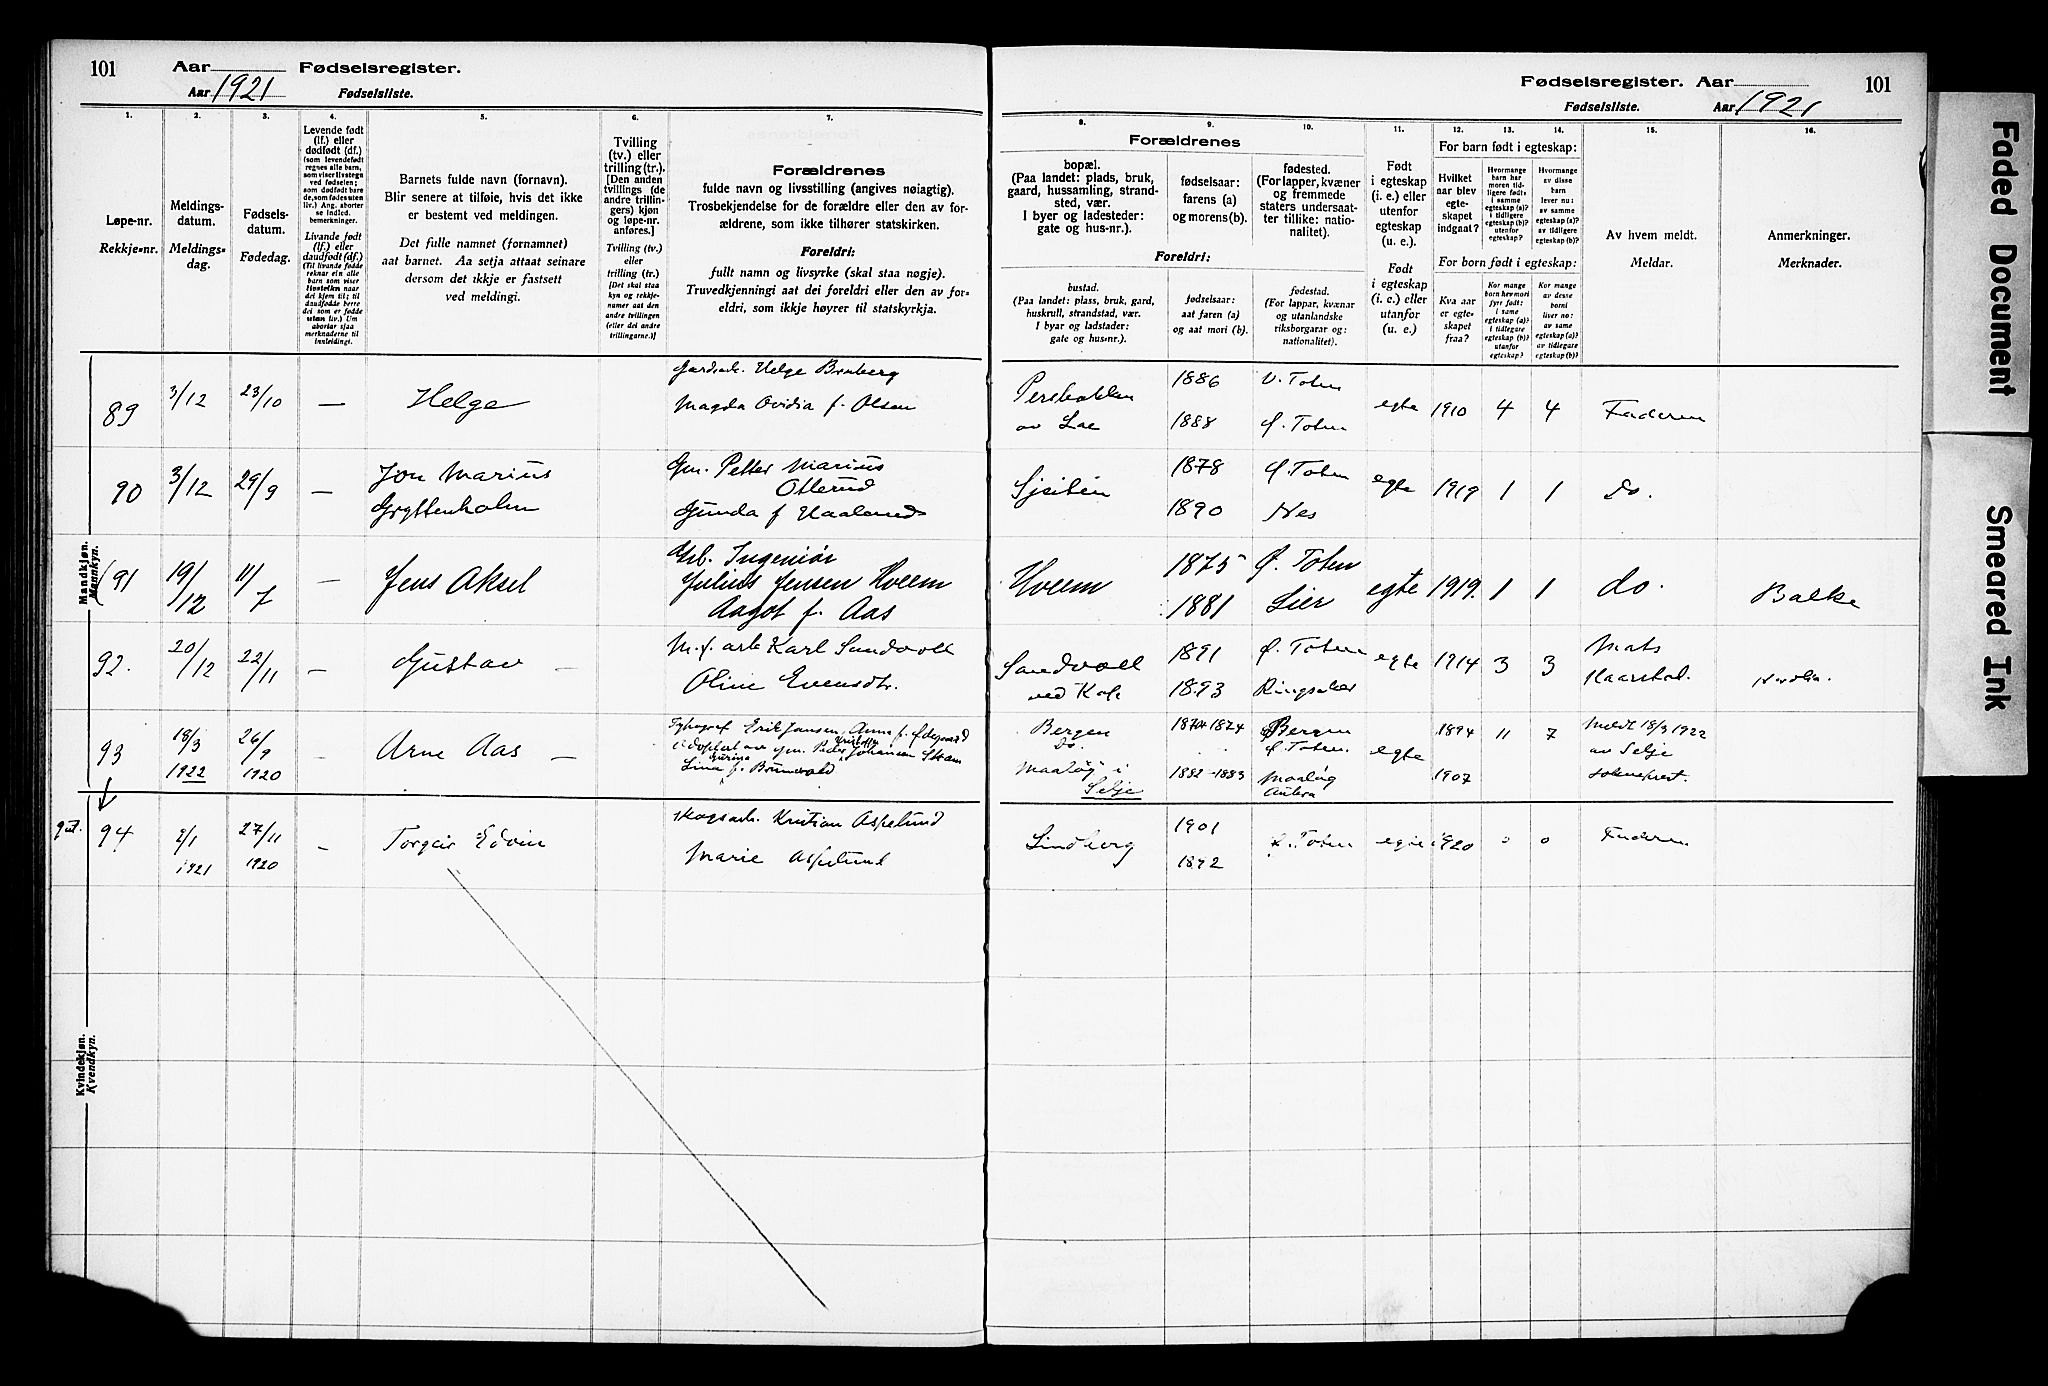 101
Aar
Fødselsregister.
Aar 1921
Fødselsliste.
1.
2.
3.
4.
5.
6.
7.
Løpe-nr.
Rekkje-nr.
Meldings-
datum.
Meldings-
dag.
Fødsels-
datum.
Fødedag.
Levende født
(lf.) eller
dødfødt (df.)
(som levendefødt
regnes alle barn,
som viser livstegn
ved fødselen;
som dødfødt bare
de, som fødes uten
liv.) Ang. aborter
se indled.
bemerkninger.
Livande født
(lf.) eller
daudfødt (df.)
(Til livande fødde
reknar ein alle
barn som viser
livsteikn naar
dei kjem til; til
daudfødde berre
dei som er fødde
utan liv.) Um
abortar sjaa
merknaderne til
innleidingi.
Barnets fulde navn (fornavn).
Blir senere at tilføie, hvis det ikke
er bestemt ved meldingen.
Det fulle namnet (fornamnet)
aat barnet. Aa setja attaat seinare
dersom det ikkje er fastsett
ved meldingi.
Tvilling
(tv.) eller
trilling (tr.).
[Den anden
tvillings (de
andre trillin-
gers) kjøn
og løpe-nr.
anføres.]
Tvilling (tv.)
eller
trilling (tr.)
[Det skal staa
kyn og rekkje-
numer aat den
andre tvillingen
(eller dei andre
trillingarne.)]
Forældrenes
fulde navn og livsstilling (angives nøiagtig).
Trosbekjendelse for de forældre eller den av for-
ældrene, som ikke tilhører statskirken.
Foreldri:
fullt namn og livsyrke (skal staa nøgje).
Truvedkjenningi aat dei foreldri eller den av for-
eldri, som ikkje høyrer til statskyrkja.
Mandkjøn.
Mannkyn.
Kvindekjøn.
Kvendkyn.
89 3/12 23/10 — Helge
Helge Bruberg
Magda Ovidia f. Olsen
90 3/12 29/9 — Jon Marius
Gryttenholm
Gm. Petter Marius
Otterud
Gunda f Haalund
91 19/12 11/7 — Jens Aksel
Grb. Ingeniør
Julius Jensen Hveem
Aagot f. Aas
92. 20/12 22/11 — Gustav —
M.f. arb Karl Sandvoll
Oline Evensdtr.
93 18/3 1922 26/9 1920 — Arne Aas —
Typograf Erik Jansen, Anna f. Ødegaard
Adoptert av gm. Peder Kristoffer Johansen Skaar
Lina f. Brunsvold
94 2/1 1921 27/11 1920 — Torgeir Edvin
Skogsarb. Kristian Aspelund
Marie Aspelund
Fødselsregister. Aar
101
Fødselsliste.
Aar 1921
8.
9.
10.
11.
12.
13.
14.
15.
16.
Forældrenes
bopæl.
(Paa landet: plads, bruk,
gaard, hussamling, strand-
sted, vær.
I byer og ladesteder:
gate og hus-nr.).
fødselsaar:
farens (a)
og morens (b).
fødested.
(For lapper, kvæner
og fremmede
staters undersaat-
ter tillike: natio-
nalitet).
Foreldri:
bustad.
(Paa landet: plass, bruk, gard,
huskrull, strandstad, vær.
I byar og ladstader:
gate og hus-nr.).
fødselsaar:
aat faren (a)
og aat mori (b).
fødestad.
(For lappar, kvænar
og utanlandske
riksborgarar og:
nationalitet).
Født
i egteskap
(i. e.) eller
utenfor
egteskap
(u. e.).
Født
i egteskap
(i. e.) eller
utanfor
egteskap
(u. e.).
For barn født i egteskap:
Hvilket
aar blev
egte-
skapet
indgaat?
Hvormange
barn har
moren tid-
ligere født:
i samme
egteskap (a)?
i tidligere
egteskap (b)?
utenfor
egteskap?
Hvormange
av disse
barn
lever nu:
av samme
egteskap (a)?
av tidligere
egteskap (b)?
For born født i egteskap:
Kva aar
er egte-
skapet
fraa?
Kor mange
born hev mori
fyrr født:
i same
egteskap (a)?
i tidlegare
egteskap (b)?
utanfor
egteskap?
Kor mange
av desse
borni
liver no:
av same
egteskap (a)?
av tidlegare
egteskap (b)?
Av hvem meldt.
Meldar.
Anmerkninger.
Merknader.
av Lae
1886
1888
V. Toten
Ø. Toten
egte 1910 4 4 Faderen
1878
1890
Ø. Toten
Nes
egte 1919 1 1 Do.
Hveem
1875
1881
Ø. Toten
Lier
egte 1919. 1 1 do. Balke
Sandvoll
ved Kolb
1891
1893
Ø. Toten
Ringsaker
egte 1914 3 3
Mats
Kaarstad.
Bergen
Do.
Maaløy i
Selje
1874 1874
1882-1883
Bergen
Ø. Toten.
Maaløy
egte
1894
1907
11 7
Meldt 18/3 1922
av Selje
sokneprest.
gut.
Lindberg
1901
1892
Ø. Toten egte 1920 0 0 Faderen
Faded Document
Smeared Ink